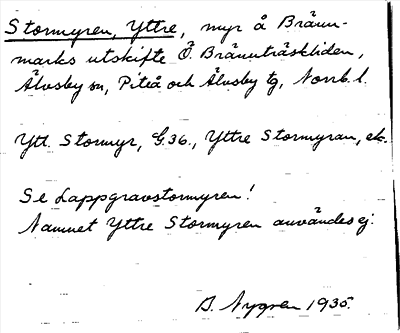 Stormyren, Yttre, myr å Bränn-
marks utskifte Ö. Brännträskliden,
Älvsby sn, Piteå och Älvsby tg, Norrb. l.
Ytt. Stormyr, G.36., Yttre Stormyran, ek.
Se Lappgravstormyren!
Namnet Yttre Stormyren användes ej.
B. Nygren 1935.